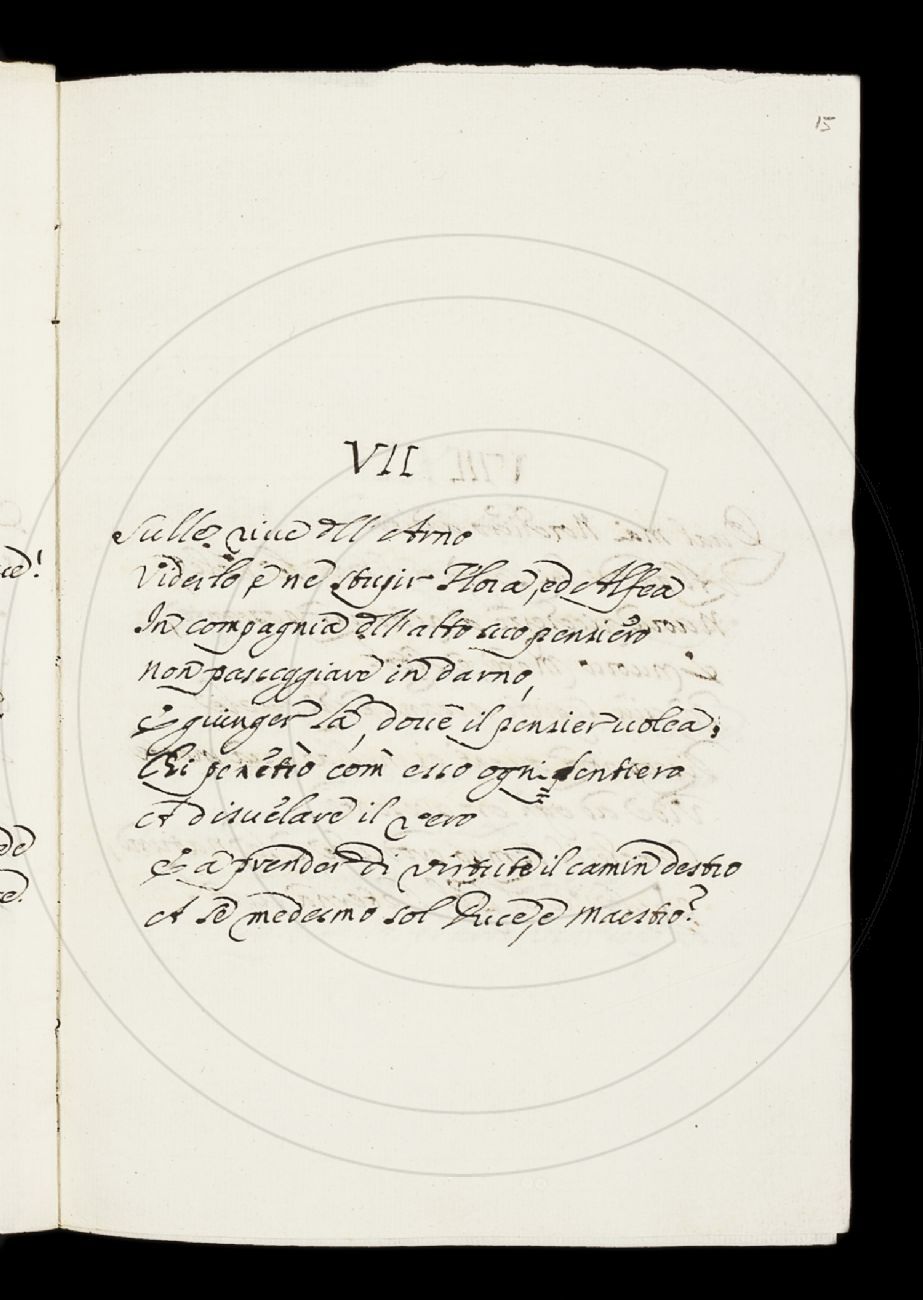 15
VII
Sulle rive dell' Arno
Viderlo, e ne stupir Flora, ed Alfea
In compagnia dell' alto suo pensiero
Non passeggiare in darno,
E giunger là, dove il pensier volea;
Chi penetrò com' esso ogni sentiero
A disvelare il vero
E a prender di virtute il camin destro
A se medesmo sol Duce, e Maestro?